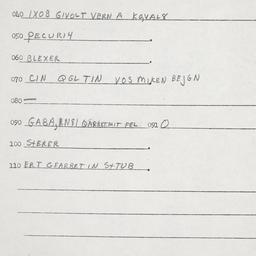 040 1X08 GIVOLT VERN A KQVAL8
050 PECURIY
060 BLEXER
070 CIN QGLTIN VOS MIKEN BEJGN
080 —
090 GABA, 092 O
100 SXERER
110 ERT GFARBET IN SXTUB